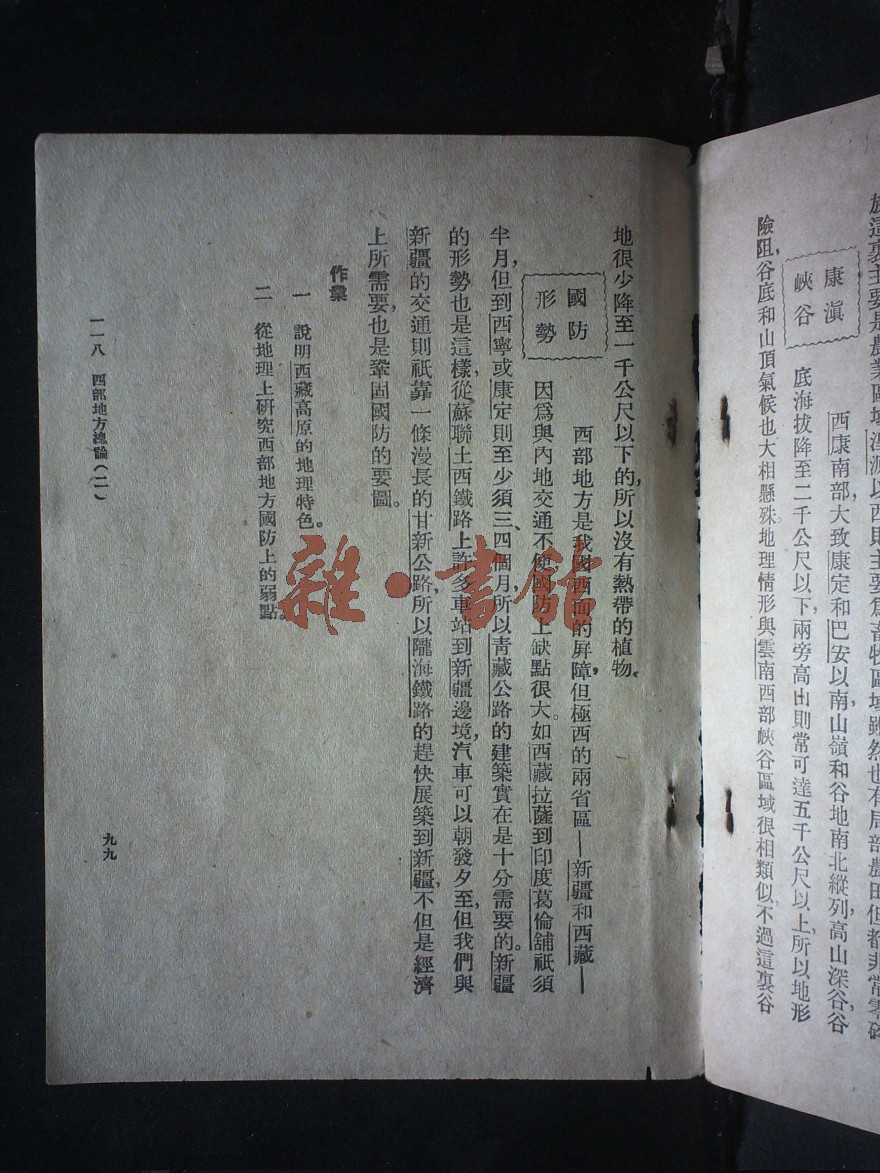 族這裏主要是農業區域湟源以西則主要爲畜牧區域雖然也有局部農田但都非常零碎
康滇
峽谷
西康南部，大致康定和巴安以南山嶺和谷地南北縱列，高山深谷，谷
底海拔降至二千公尺以下，兩旁高出則常可達五千公尺以上，所以地形
險阻，谷底和山頂氣候也大相懸殊地理情形與雲南西部峽谷區域很相類似不過這裏谷
地很少降至一千公尺以下的，所以沒有熱帶的植物。
國防
形勢
西部地方是我國西面的屏障，但極西的兩省區—新疆和西藏—
因爲與內地交通不便國防上缺點很大。如西藏拉薩到印度葛倫舖祇須
半月，但到西寧或康定則至少須三、四個月，所以青藏公路的建築實在是十分需要的。新疆
的形勢也是這樣，從蘇聯土西鐵路上許多車站到新疆邊境，汽車可以朝發夕至，但我們與
新疆的交通則祇靠一條漫長的甘新公路，所以隴海鐵路的趕快展築到新疆，不但是經濟
上所需要，也是鞏固國防的要圖。
作業
一 說明西藏高原的地理特色。
二 從地理上研究西部地方國防上的弱點。
一一八 西部地方總論(二)
九九
雜·書館